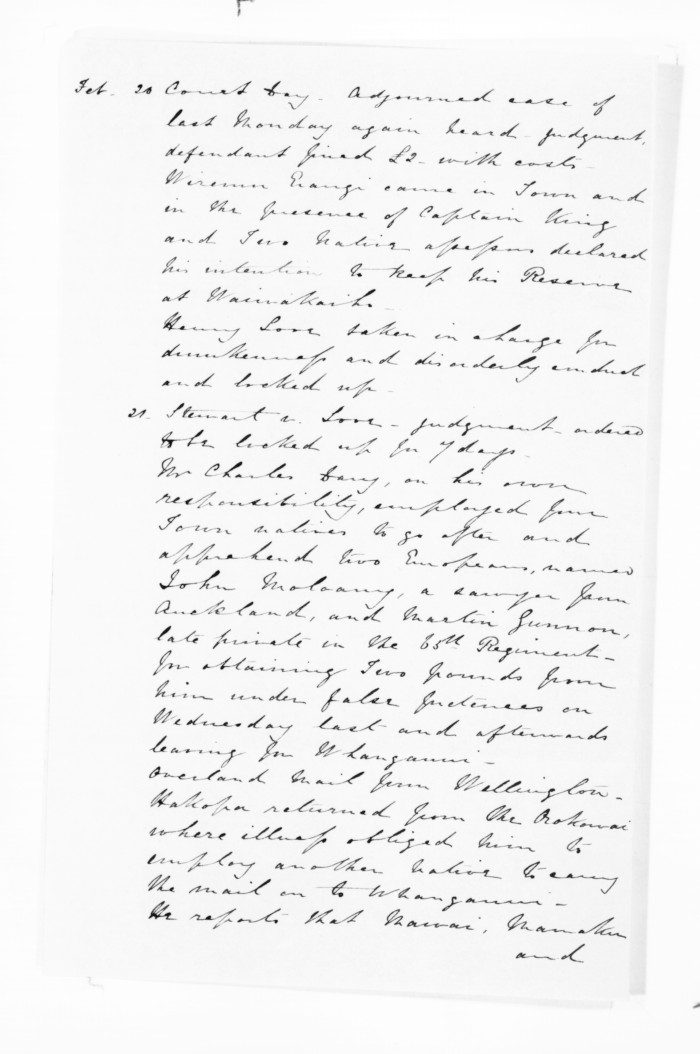 Feb. 20 Court Day - Adjourned case of
last Monday again heard - judgment,
defendant fined £2 - with costs -
Wiremu Erangi came in Town and
in the presence of Captain King
and Two Native assessors declared
his intention to keep his Reserve
at Waiwakaiho -
Henry Love taken in charge for
drunkenness and disorderly conduct
and locked up -
21. Stewart v. Love - judgment - ordered
to be locked up for 7 days -
Mr Charles Davy, on his own
responsibility, employed four
Town natives to go after and
apprehend two Europeans, named
John Moloany, a sawyer from
Auckland, and Martin Gunnon,
late private in the 65th Regiment -
for obtaining Two pounds from
him under false pretences on
Wednesday last and afterwards
leaving for Whanganui -
Overland Mail from Wellington -
Hakopa returned from the Otokowai
where illness obliged him to
employ another native to carry
the mail on to Whanganui -
He reports that Mawai, Mamaku
and